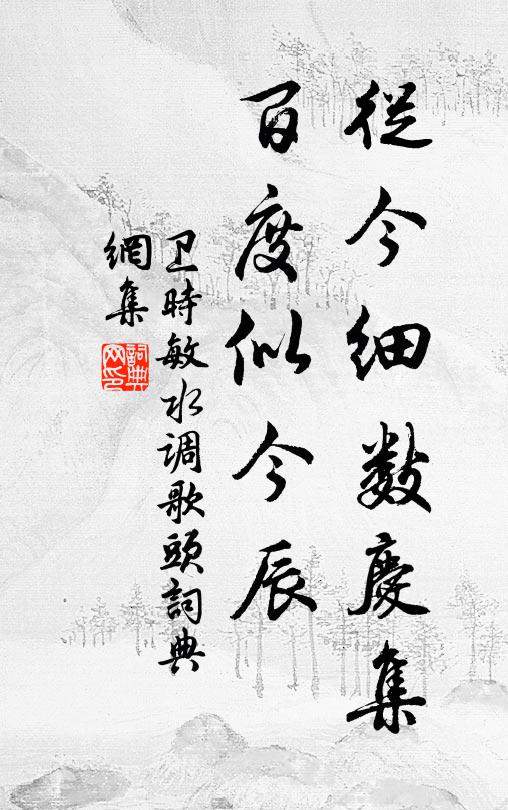 從今細数慶集
百度似今辰
卫時敏水调歌頭詞典
網集
詞典
网印